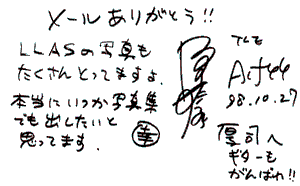 メールありがとう!!
LLASの写真も
たくさんとってますよ.
本当にいつか写真集
でも出したいと
思ってます.
98.10.27
厚司へ
ギターも
がんばれ!!